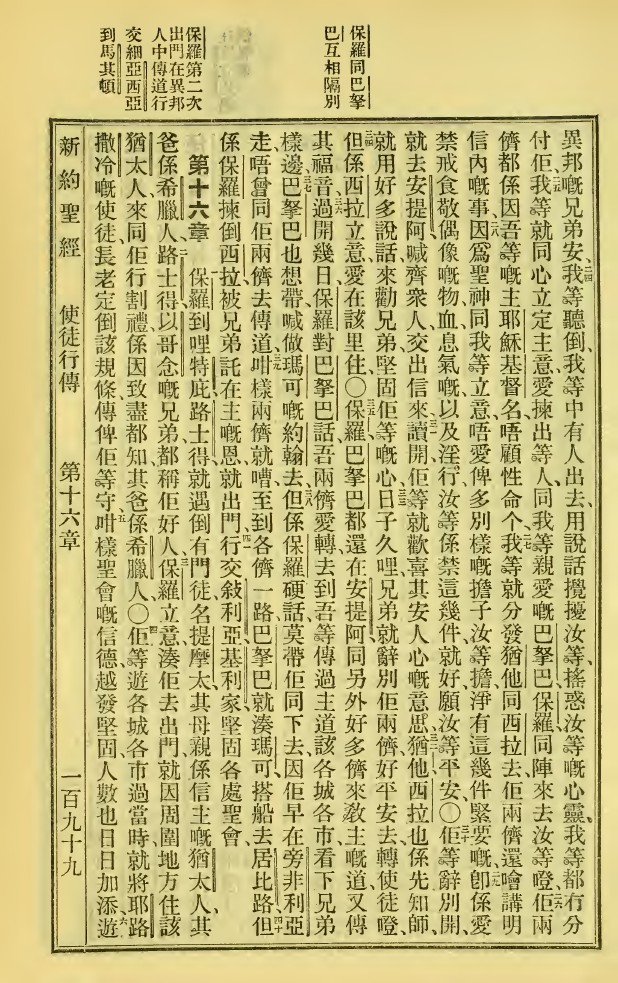 保羅同巴拏
巴互相隔別
保羅第二次
出門在異邦
人中傳道行
交細亞西亞
到馬其頓
異邦嘅兄弟安、我等聽倒我等中有人出去、用說話攪擾汝等、搖惑汝等嘅心靈、我等都冇分
付佢、我等就同心立定主意、愛揀出等人、同我等親愛嘅巴拏巴保羅同陣來去汝等嶝、佢兩
儕都係因吾等嘅主耶穌基督名、唔顧性命个、我等就分發猶他同西拉去、佢兩儕還噲講明
信內嘅事、因爲聖神同我等立意、唔愛俾多別樣嘅擔子汝等擔、淨有這幾件緊要嘅、卽係愛
禁戒食敬偶像嘅物、血、息氣嘅、以及淫行、汝等係禁這幾件就好、願汝等平安〇佢等辭別開、
就去安提阿、喊齊衆人、交出信來、讀開佢等就歡喜其安人心嘅意思、猶他西拉也係先知師、
就用好多說話來勸兄弟、堅固佢等嘅心、日子久哩、兄弟就辭別佢兩儕、好平安去轉使徒嶝、
但係西拉立意愛在該里住、〇保羅巴拏巴都還在安提阿、同另外好多儕來敎主嘅道、又傳
其福音、過開幾日、保羅對巴拏巴話、吾兩儕愛轉去到吾等傳過主道該各城各市、看下兄弟
樣邊、巴拏巴也想帶喊做瑪可嘅約翰去、但係保羅硬話、莫帶佢同下去、因佢早在旁非利亞
走、唔曾同佢兩儕去傳道、咁樣兩儕就嘈至到各儕一路、巴拏巴就湊瑪可、搭船去居比路、但
係保羅揀倒西拉、被兄弟託在主嘅恩、就出門、行交敘利亞基利家、堅固各處聖會、
第十六章 保羅到哩特庇路士得、就遇倒有門徒名提摩太、其母親係信主嘅猶太人、其
爸係希臘人、路士得以哥念嘅兄弟、都稱佢好人、保羅立意湊佢去出門、就因周圍地方住該
猶太人、來同佢行割禮、係因致盡都知其爸係希臘人、〇佢等遊各城各市過當時、就將耶路
撒冷嘅使徒長老定倒該規條、傳俾佢等守、咁樣聖會嘅信德、越發堅固、人數也日日加添、遊
新約聖經 使徒行傳 第十六章 一百九十九